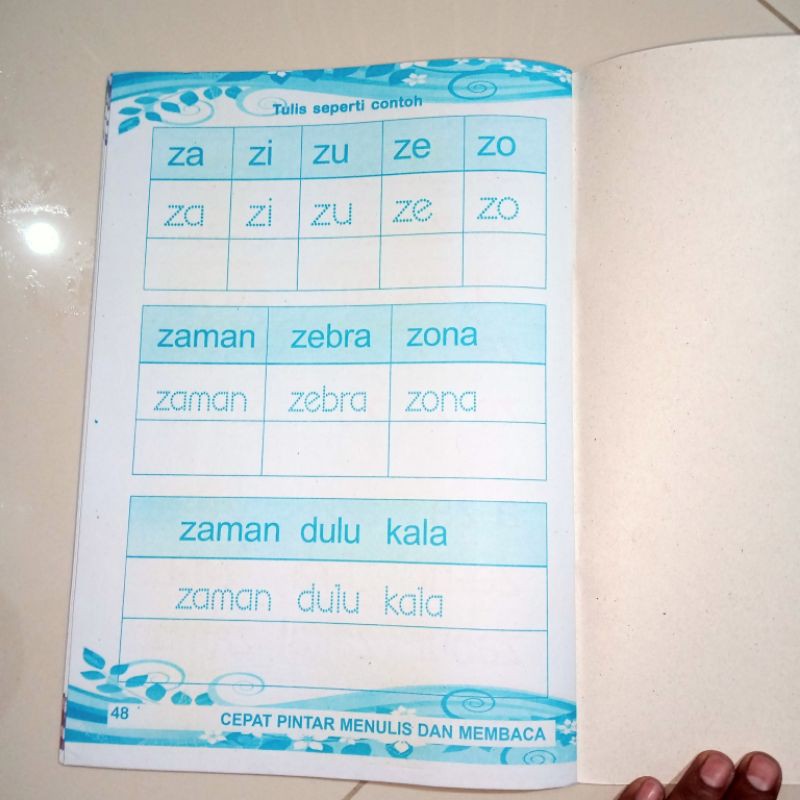 Tulis seperti contoh
za zi zu ze zo
za zi zu ze zo
zaman zebra zona
zaman zebra zona
zaman dulu kala
zaman dulu kala
48 CEPAT PINTAR MENULIS DAN MEMBACA